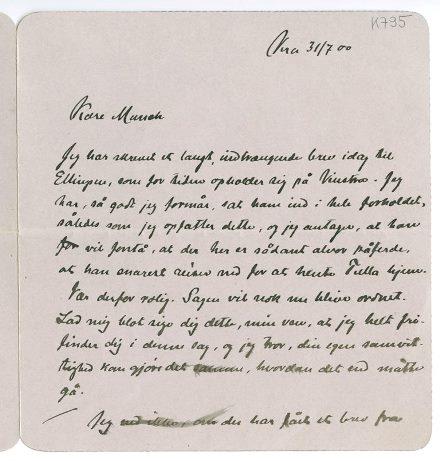 K795
Kra 31/7 00
Kære Munch
Jeg har skrevet et langt, indtrængende brev idag til
Ellingsen, som for tiden opholder sig på Vinstra. Jeg
har, så godt jeg formår, sat ham ind i hele forholdet,
således som jeg opfatter dette, og jeg antager, at han
for vil forstå, at der her er sådant alvor påferde,
at han snarest reiser ned for at hente Tulla hjem.
Vær derfor rolig. Sagen vil nok nu blive ordnet.
Lad mig blot sige dig dette, min ven, at jeg helt fri-
finder dig i denne sag, og jeg tror, din egen samvit-
tighed kan gjøre det samme, hvordan det end måtte
gå.
Jeg om der har fået et brev fra